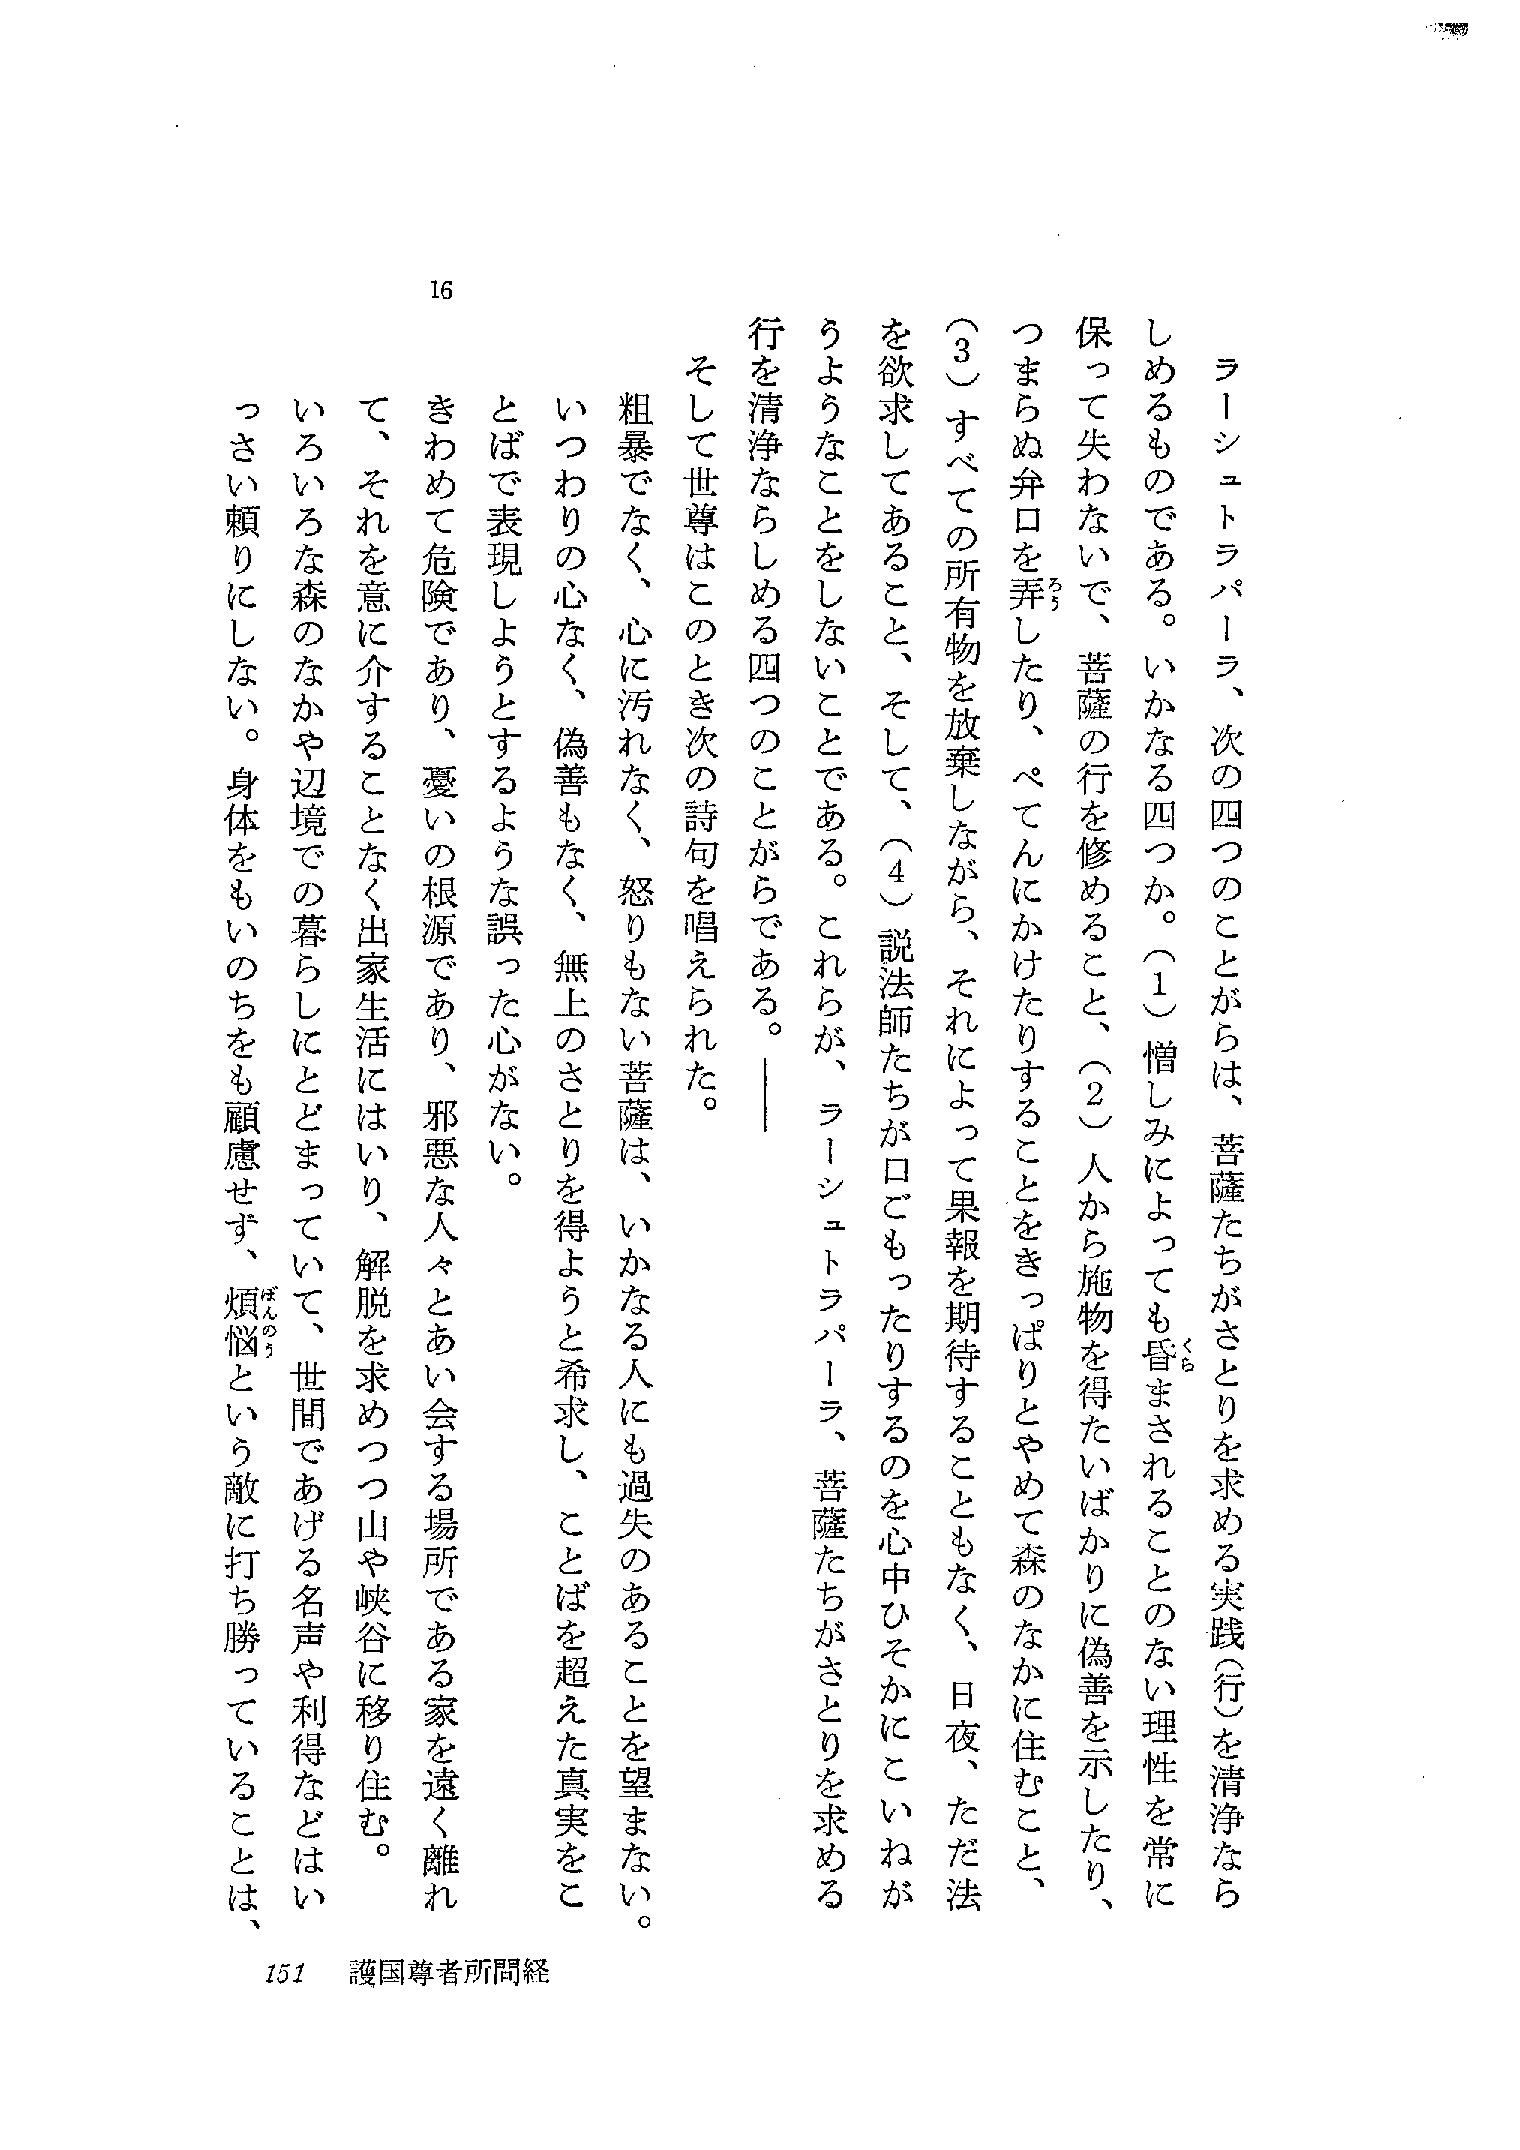 ラーシュトラパーラ、次の四つのことがらは、菩薩たちがさとりを求める実践(行)を清浄なら
しめるものである。いかなる四つか。(1)憎しみによっても昏まされることのない理性を常に
保って失わないで、菩薩の行を修めること、(2)人から施物を得たいばかりに偽善を示したり、
つまらぬ弁口を弄したり、ぺてんにかけたりすることをきっぱりとやめて森のなかに住むこと、
(3)すべての所有物を放棄しながら、それによって果報を期待することもなく、日夜、ただ法
を欲求してあること、そして、(4)説法師たちが口ごもったりするのを心中ひそかにこいねが
うようなことをしないことである。これらが、ラーシュトラパーラ、菩薩たちがさとりを求める
行を清浄ならしめる四つのことがらである。――
そして世尊はこのとき次の詩句を唱えられた。
粗暴でなく、心に汚れなく、怒りもない菩薩は、いかなる人にも過失のあることを望まない。
いつわりの心なく、偽善もなく、無上のさとりを得ようと希求し、ことばを超えた真実をこ
とばで表現しようとするような誤った心がない。
16
きわめて危険であり、憂いの根源であり、邪悪な人々とあい会する場所である家を遠く離れ
て、それを意に介することなく出家生活にはいり、解脱を求めつつ山や峡谷に移り住む。
いろいろな森のなかや辺境での暮らしにとどまっていて、世間であげる名声や利得などはい
っさい頼りにしない。身体をもいのちをも顧慮せず、煩悩という敵に打ち勝っていることは、
151 護国尊者所問経